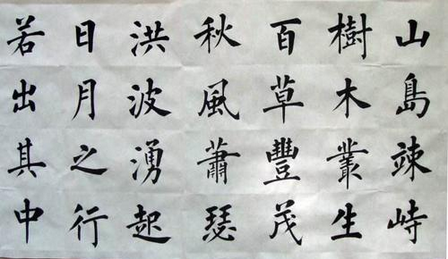 山島竦峙
樹木叢生
百草豐茂
秋風蕭瑟
洪波湧起
日月之行
若出其中